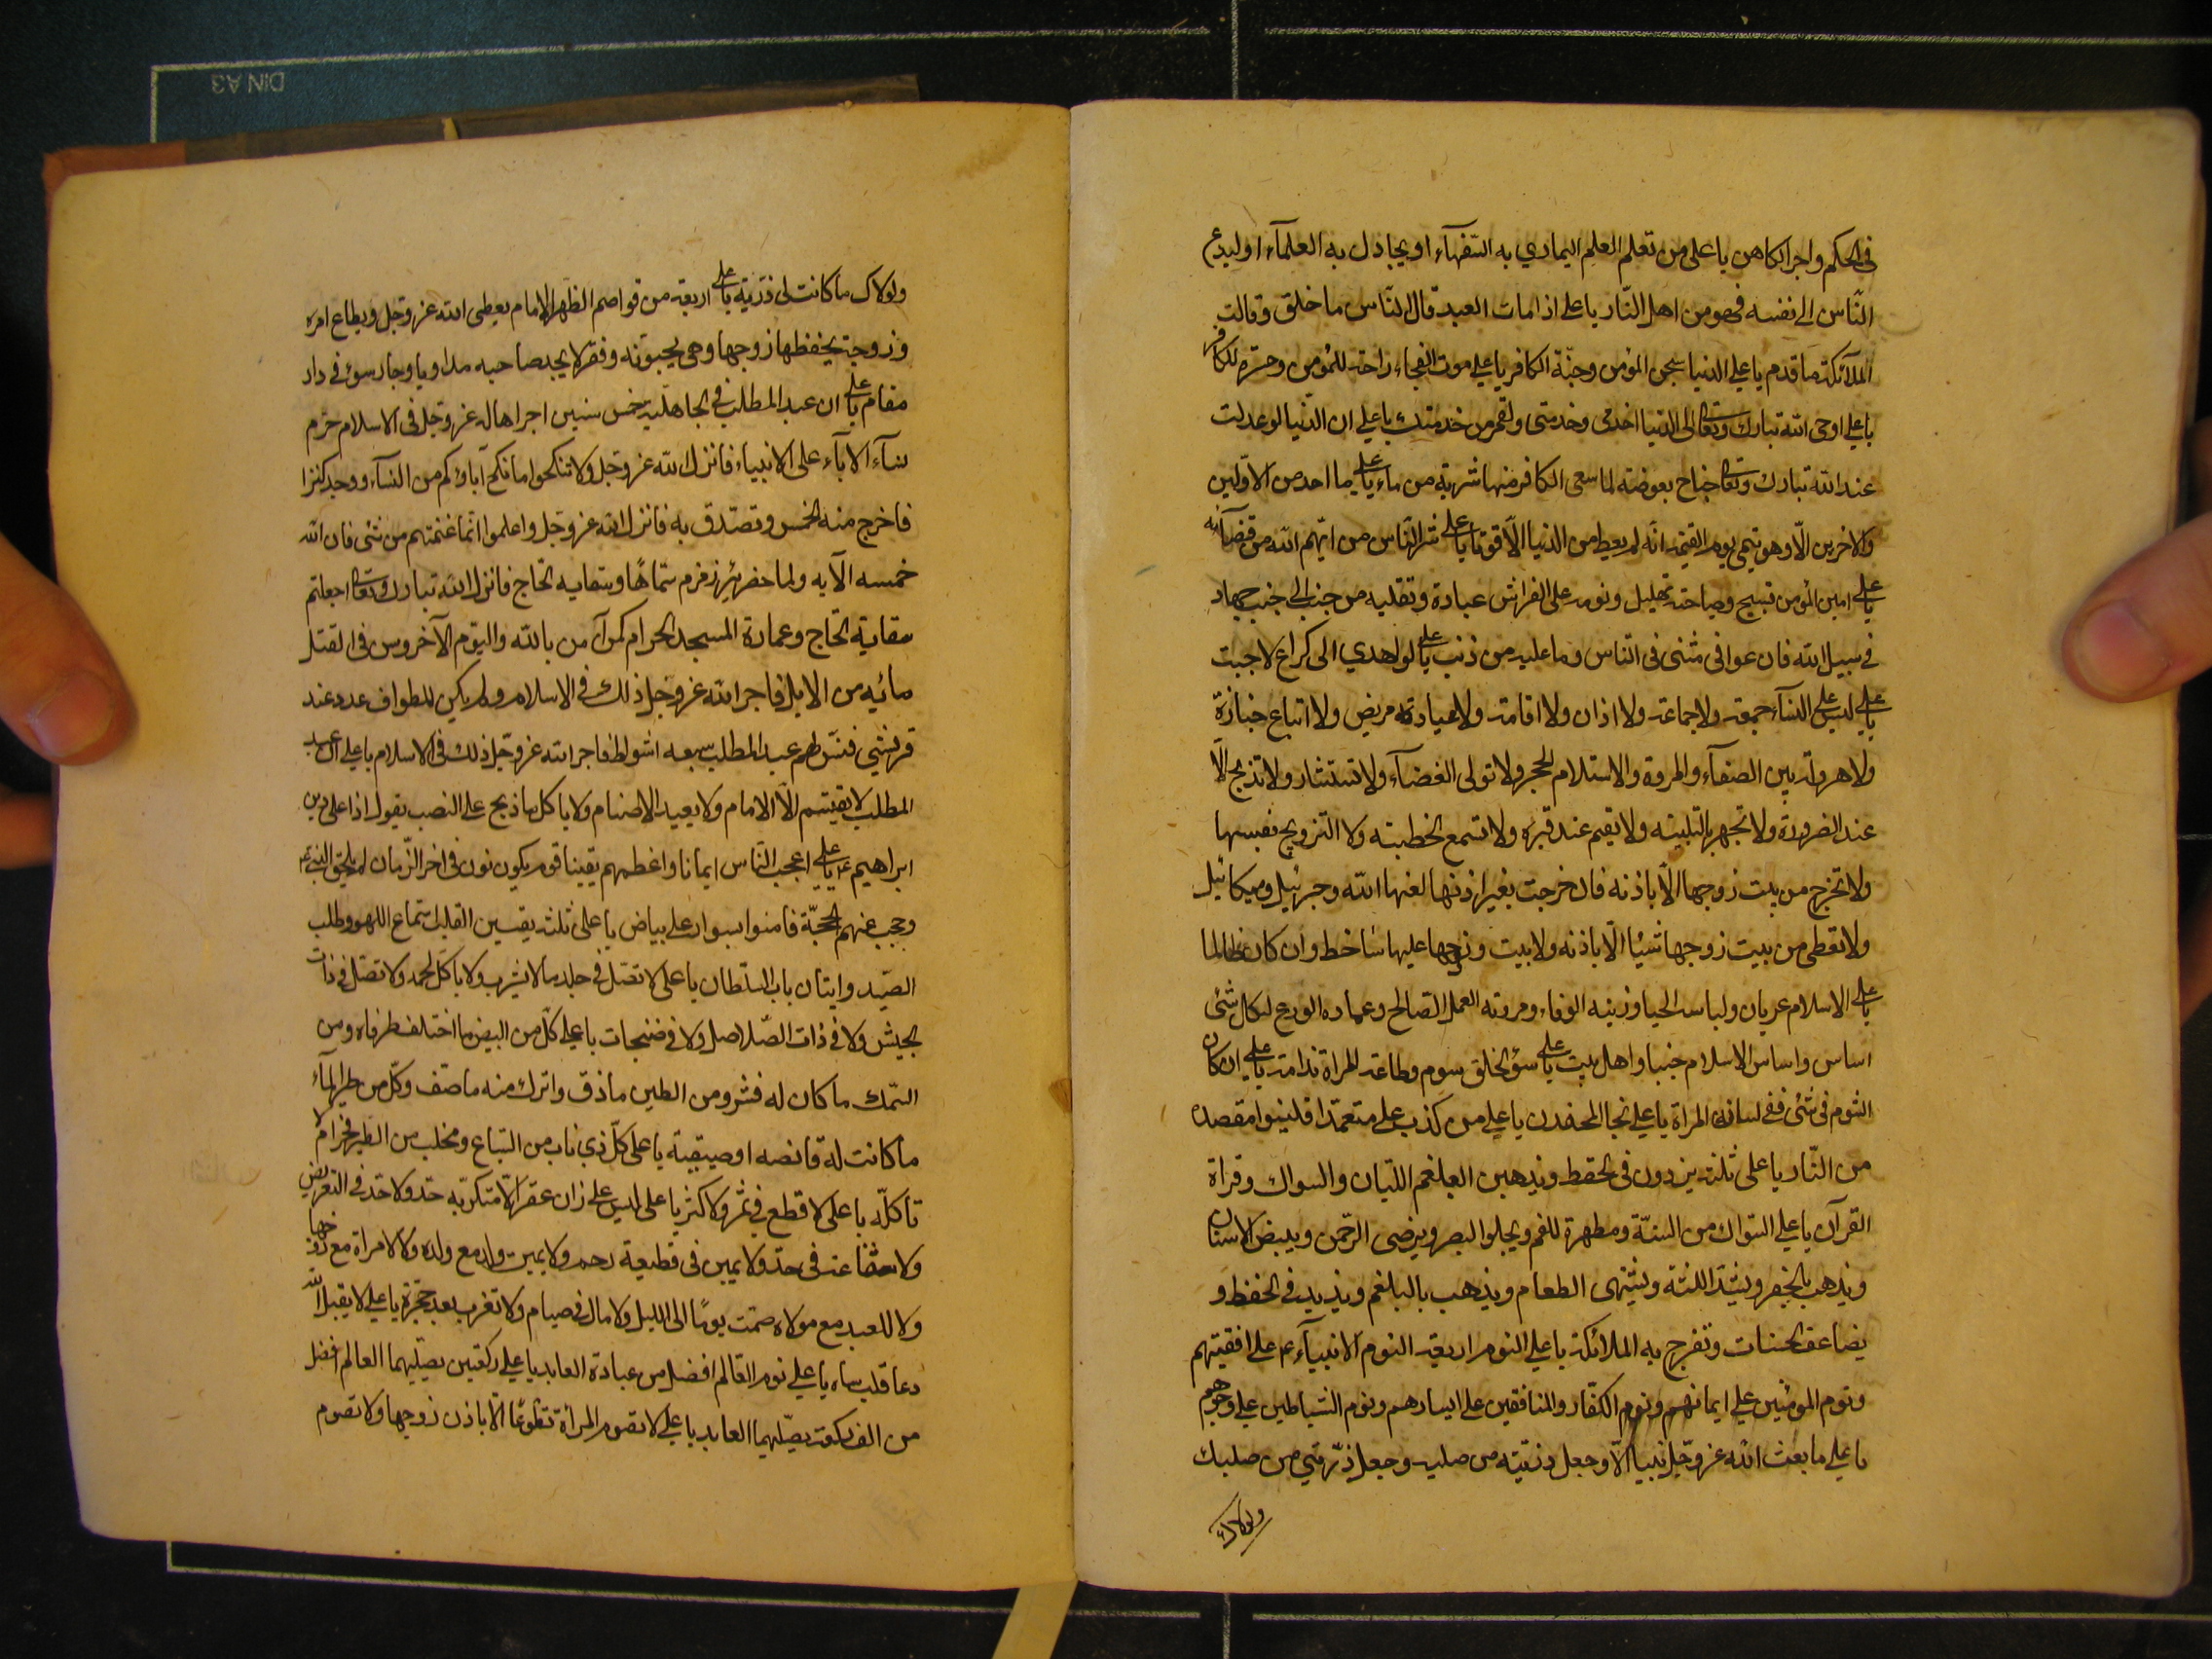 في الحكم واجر الكاهن يا على من تعلم العلم اليماري به السّفهآء او يجادل به العلمآء او ليدع
النّاس الى نفسه فهو من اهل النّار يا على اذا مات العبد قال النّاس ما خلق وقالت
الملآئكة ما قدم يا علي الدنيا سجن المؤمن وجنّة الكافر يا علي موت الفجاء راحة للمؤمن وحسرة للكافر
يا علي اوحى الله تبارك وتعا الى الدنيا اخدمى وخدمتى ولقمر من خدمتك يا علي ان الدّنيا لو عدلت
عند الله تبارك وتعا جناح بعوضة لما سعى الكافر منها شربة من ماء يا علي ما احد من الاوّلين
والاخرين الّا وهو يتمى يوم القيمة انّه لم يعط من الدنيا الّا قوتا يا على شرّ النّاس من اتّهم الله من قضآئه
يا على امين المؤمن تسبيح وصياحته تهليل ونومه على الفراش عبادة وتقلبه من جنب الى جنب جهاد
في سبيل الله فان عوافى مثنى فى النّاس وما عليه من ذنب يا على لو اهدي الى كراع لاجبت
يا على ليس على النسآء جمعة ولا جماعة ولا اذان ولا اقامة ولا عيادة مريض ولا اتباع جنازة
ولا هرولة بين الصفآء والمروة والاستلام الحجر ولا تولى الغضآء ولا تستشار ولا تذبح الّا
عند الضرورة ولا تجهر بالتلبيته ولا تقيم عند قبره ولا تسمع الخطبته ولا التزويج نفسها
ولا تخرج من بيت زوجها الّا باذنه فان خرجت بغير اذنها لعنها الله وجبرئيل وميكائيل
ولا تعطى من بيت زوجها شيئا الّا باذنه ولا بيت وزوجها عليها ساخط وان كان ظالما
يا على الاسلام عريان ولباسه الحيا وزينه الوفاء ومروته العمل الصّالح وعماده الورع لكل شئى
اساس واساس الاسلام حبنا واهل بيت يا على سؤ الخلق سوم وطاعة المراة ندامة يا على ان كان
الشوم فى شئى ففى لسانه المراة يا علي نجا المخفدن يا علي من كذب على متعمّدا فلينبوا مقصده
من النّار يا على ثلثة يزدون فى الحفظ ويذهبن البلغم اللبان والسواك وقراة
القرآن يا علي السّواك من السنّة ومطهرة للفم ويجلو البصر ويرضى الرّحمن ويبيض الاسنان
ويذهب بالخفر ويشدّ اللثة ويشتهى الطعام ويذهب بالبلغم ويزيد فى الحفظ و
يضاعف الحسنات وتفرح به الملائكة يا علي النوم اربعة النوم الانبيآء ع على اقفيتهم
ونوم المومنين علي ايمانهم ونوم الكفّار والمنافقين على ايسارهم ونوم الشياطين علي وجوههم
يا علي ما بعث الله عزوجل نبيا الّا وجعل ذريّته من صلبه وجعل ذرّيتي من صلبك
ولولاك
ولولاك ما كانت لى ذرّية يا على اربعة من قواصم الظهر الامام يعطى الله عزوجل ويطاع امره
وزوجة يحفظها زوجها وهى يحبونه وفقر لا يجد صاحبه مداويا وجار سوء فى دار
مقام يا على ان عبد المطلب فى الجاهلية خمس سنين اجراها له عزوجل فى الاسلام حرم
نسآء الابآء على الانبياء فانزل الله عزوجل ولا تنكحوا ما نكح آباؤكم من النسآء ووجد كنزا
فاخرج منه الخمس وتصدّق به فانزل الله عزوجل واعلموا انّما غنمتم من شئى فان الله
خمسه الآيه ولما حفر بئر زمزم سمّاها وسقايه الحاج فانزل الله تبارك وتعا اجعلتم
سقاية الحاج وعمارة المسجد الحرام كمن آمن بالله واليوم الآخر وس فى القتل
مائيه من الابل فاجرا الله عزوجل ذلك فى الاسلام ولم يكن للطواف عدد عند
قريشي فسّن لهم عبد المطلب سبعه اشولط فاجر الله عزوجل ذلك فى الاسلام يا على ان عبد
المطلب لا يقيتسم الّا الامام ولا يعبد الاصنام ولا ياكل ما ذبح على النصب يقول اذا على دين
ابراهيم ع يا على اعجب النّاس ايمانا واغطمهم يقينا قوم يكونون فى اخر الزّمان لم يلحق النبى ع
وحجب عنهم الحجبّة فامنوا بسوان على بياض يا على ثلثه يقسين القلب استماع اللهو وطلب
الصّيد وايتان باب السّلطان يا على لا تصّل فى جلد ما لا يشرب ولا ياكل لحمه ولا تصّل فى ذات
الجيش ولا فى ذات الصّلاصل ولا فى ضنجات يا علي كلّ من البيض ما اختلف طرفاه ومن
السّمك ما كان له قشر ومن الطين ما ذق واترك منه ما صّف وكلّ من طير المآء
ما كانت له قانصه او صيقية يا على كلّ ذي ناب من السّباع ومخلب من الطير فحرام لا
تأكلّه يا على لا قطع فى ثمر ولا كثر يا على ليس على زان عقر الّا متكربّه حدّ ولا حدّ فى التعريض
ولا شفاعة فى حدّ ولا يمين فى قطيعة رحم ولا يمين والد مع ولده ولا لامراة مع زوجها
ولا للعبد مع مولاه صمت يومًا الى الليل ولا مال فى صيام ولا تغرب بعد هجرة يا علي لا يقبل الله
دعا قلب ساه يا علي نوم العّالم افضل من عبادة العابد يا علي ركعتين يصلّيهما العالم افضل
من الف ركعة يصلّيهما العابد يا علي لا تصوم المرأة تطوّعًا الّا باذن زوجها ولا تصوم